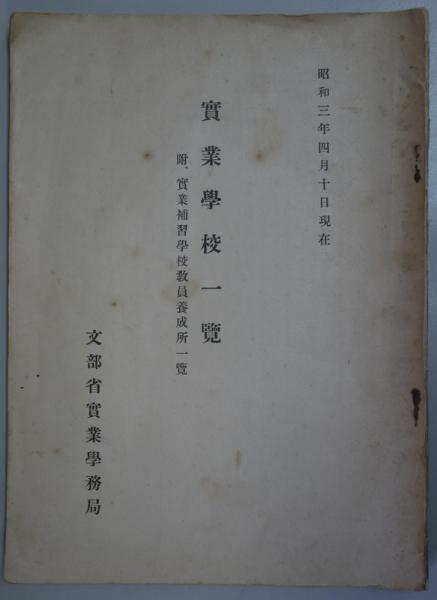 昭和三年四月十日現在
實業學校一覽
附、實業補習學校敎員養成所一覽
文部省實業學務局